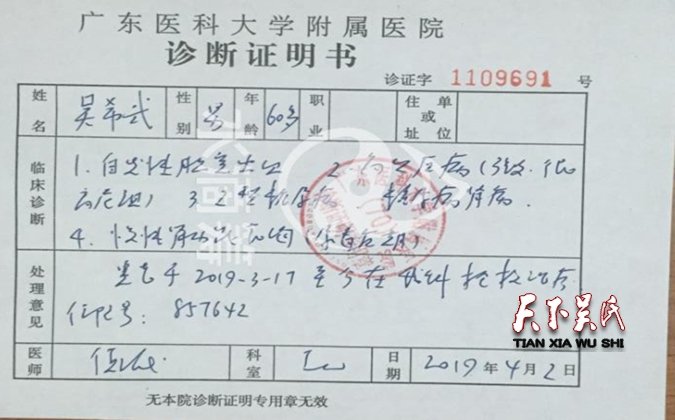 广东医科大学附属医院
诊断证明书
诊证字 1109691 号
姓名 吴希武 性别 男 年龄 60岁 职业 住址 或 单位
临床诊断
1. 自发性脑室出血 2. 高血压病(3级.
3. 2型糖尿病 糖尿病肾病
4. 慢性肾功能
处理意见
患者于2019-3-17至今在我科抢救治疗
住院号: 857642
医师 科室 日期 2019年4月2日
无本院诊断证明专用章无效
天下吴氏
TIAN XIA WU SHI